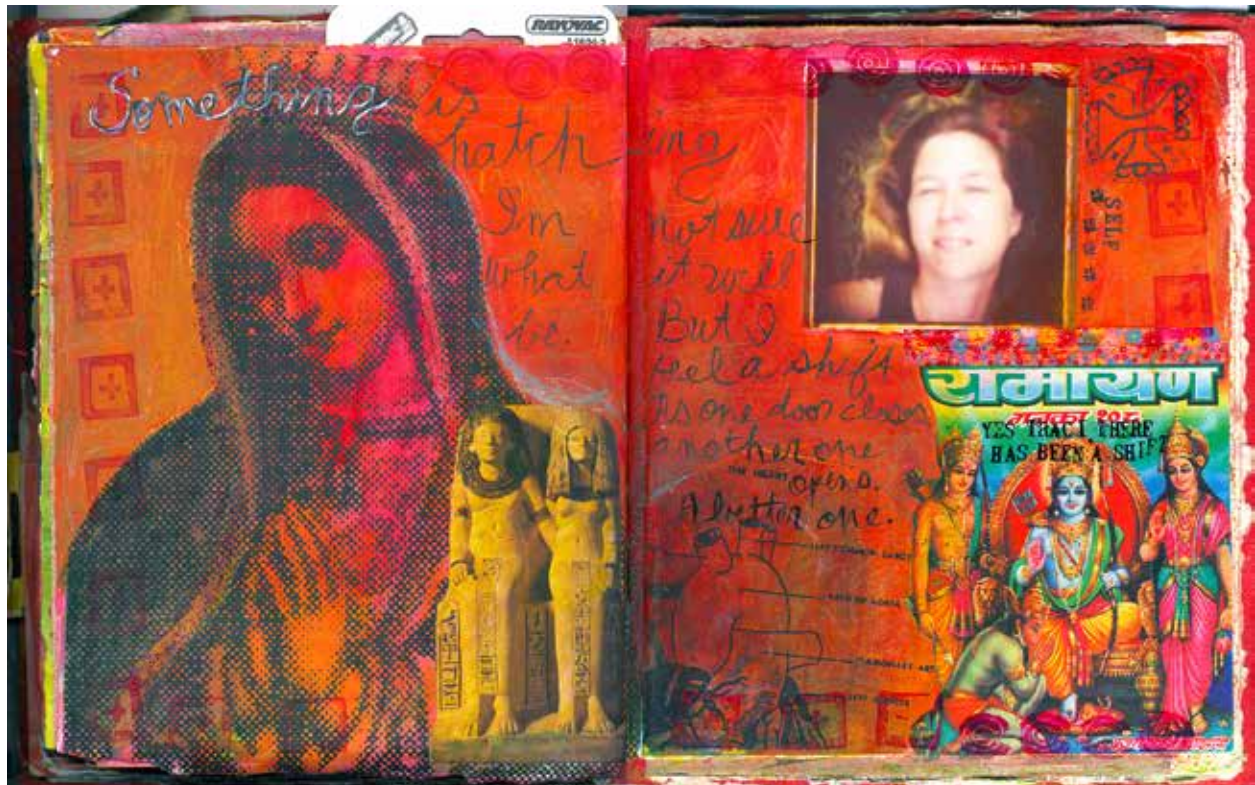 RAYOVAC
Something is
hatch ing
I'm not sure
what it will
be. But I
feel a shift
As one door closes
another one
opens.
A better one.
SELF
रामायण
YES THAT THERE
HAS BEEN A SHIFT